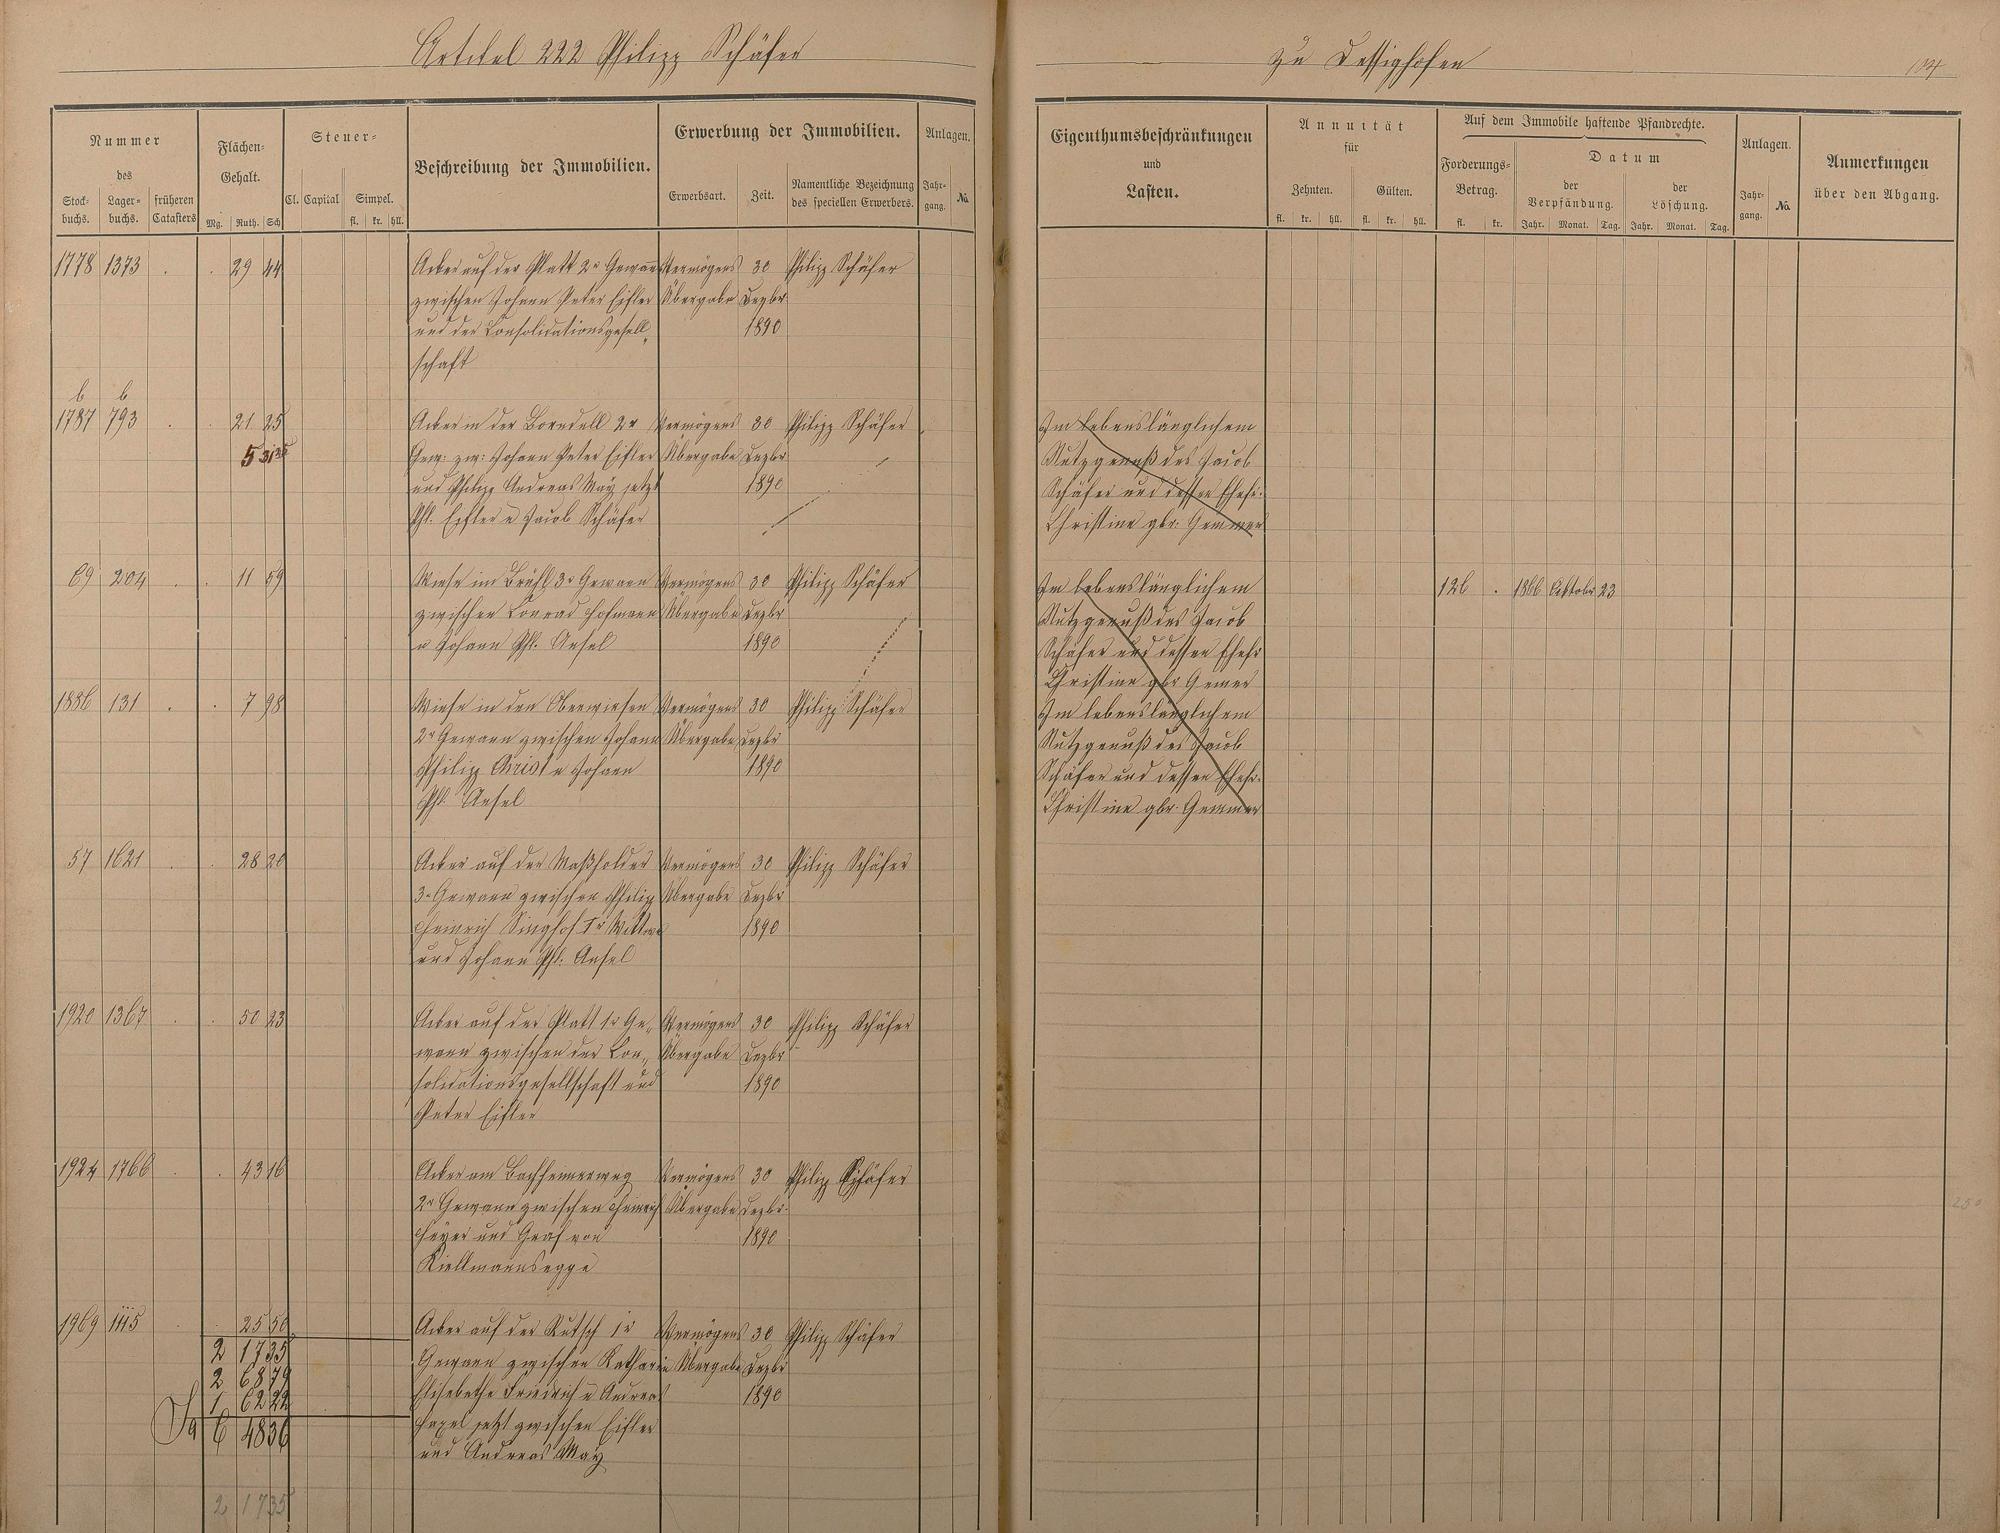 Artikel 222 Philipp Schäfer
zu Dessighofen
104
Nummer
des
Stock-
buchs.
Lager-
buchs.
früheren
Catasters
Flächen-
Gehalt.
Mg. Ruth. Sch
Steuer-
Cl. Capital Simpel.
fl. kr. hll.
Beschreibung der Immobilien.
Erwerbung der Immobilien.
Erwerbsart. Zeit. Namentliche Bezeichnung
des speciellen Erwerbers.
Anlagen.
Jahr-
gang.
No
1778 1373 . . 29 44 Acker auf der Platt 2r Gewann Vermögens 30 Philipp Schäfer
zwischen Johann Peter Eisler Übergabe Dezbr
und der Consolidationsgesell- 1890
schaft
b b
1787 793 . . 21 25 Acker in der Borndell 2r Vermögens 30 Philipp Schäfer
5 31 Gew: zw: Johann Peter Eisler Übergabe Dezbr
und Philipp Andreas May jetzt 1890
Phl. Eisler u Jacob Schäfer
69 204 . . 11 59 Wiese im Brühl 3r Gewann Vermögens 30 Philipp Schäfer
zwischen Conrad Hofmann Übergabe Dezbr
u Johann Phl. Ansel 1890
1886 131 . . 7 98 Wiese in den Oberwiesen Vermögens 30 Philipp Schäfer
2r Gewann zwischen Johann Übergabe Dezbr
Philipp Christ u Johann 1890
Phl. Ansel
57 1621 . . 28 20 Acker auf der Maßholder Vermögens 30 Philipp Schäfer
3r Gewann zwischen Philipp Übergabe Dezbr
Heinrich Singhof 1r Wittwe 1890
und Johann Phl. Ansel
1920 1367 . . 50 23 Acker auf der Platt 1r Ge- Vermögens 30 Philipp Schäfer
wann zwischen der Con- Übergabe Dezbr
solidationsgesellschaft und 1890
Peter Eisler
1924 1766 . . 43 16 Acker am Bachheimerweg Vermögens 30 Philipp Schäfer
2r Gewann zwischen Heinrich Übergabe Dezbr.
Heyer und Graf von 1890
Kielmannsegge
1969 1115 . . 25 50 Acker auf der Rutsch 1r Vermögens 30 Philipp Schäfer
2 17 35 Gewann zwischen Katharin Übergabe Dezbr
2 68 79 Elisabethe Friedrich u Andreas 1890
1 62 22 Hapel jetzt zwischen Eisler
Sa 6 48 36 und Andreas May
2 17 35
Eigenthumsbeschränkungen
und
Lasten.
Annuität
für
Zehnten. Gülten.
fl. kr. hll. fl. kr. hll.
Auf dem Immobile haftende Pfandrechte.
Forderungs-
Betrag.
fl. kr.
Datum
der
Verpfändung.
Jahr. Monat. Tag.
der
Löschung.
Jahr. Monat. Tag.
Anlagen.
Jahr-
gang.
No
Anmerkungen
über den Abgang.
Im lebenslänglichem
Nutzgenuß des Jacob
Schäfer und dessen Ehefr.
Christine gbr. Gemmer
Im lebenslänglichem 126 . 1866 Oktobr 23
Nutzgenuß des Jacob
Schäfer und dessen Ehefr
Christine gbr Gemer
Im lebenslänglichem
Nutzgenuß des Jacob
Schäfer und dessen Ehefr.
Christine gbr. Gemmer
250